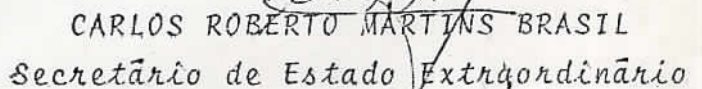 CARLOS ROBERTO MARTINS BRASIL
Secretário de Estado Extraordinário